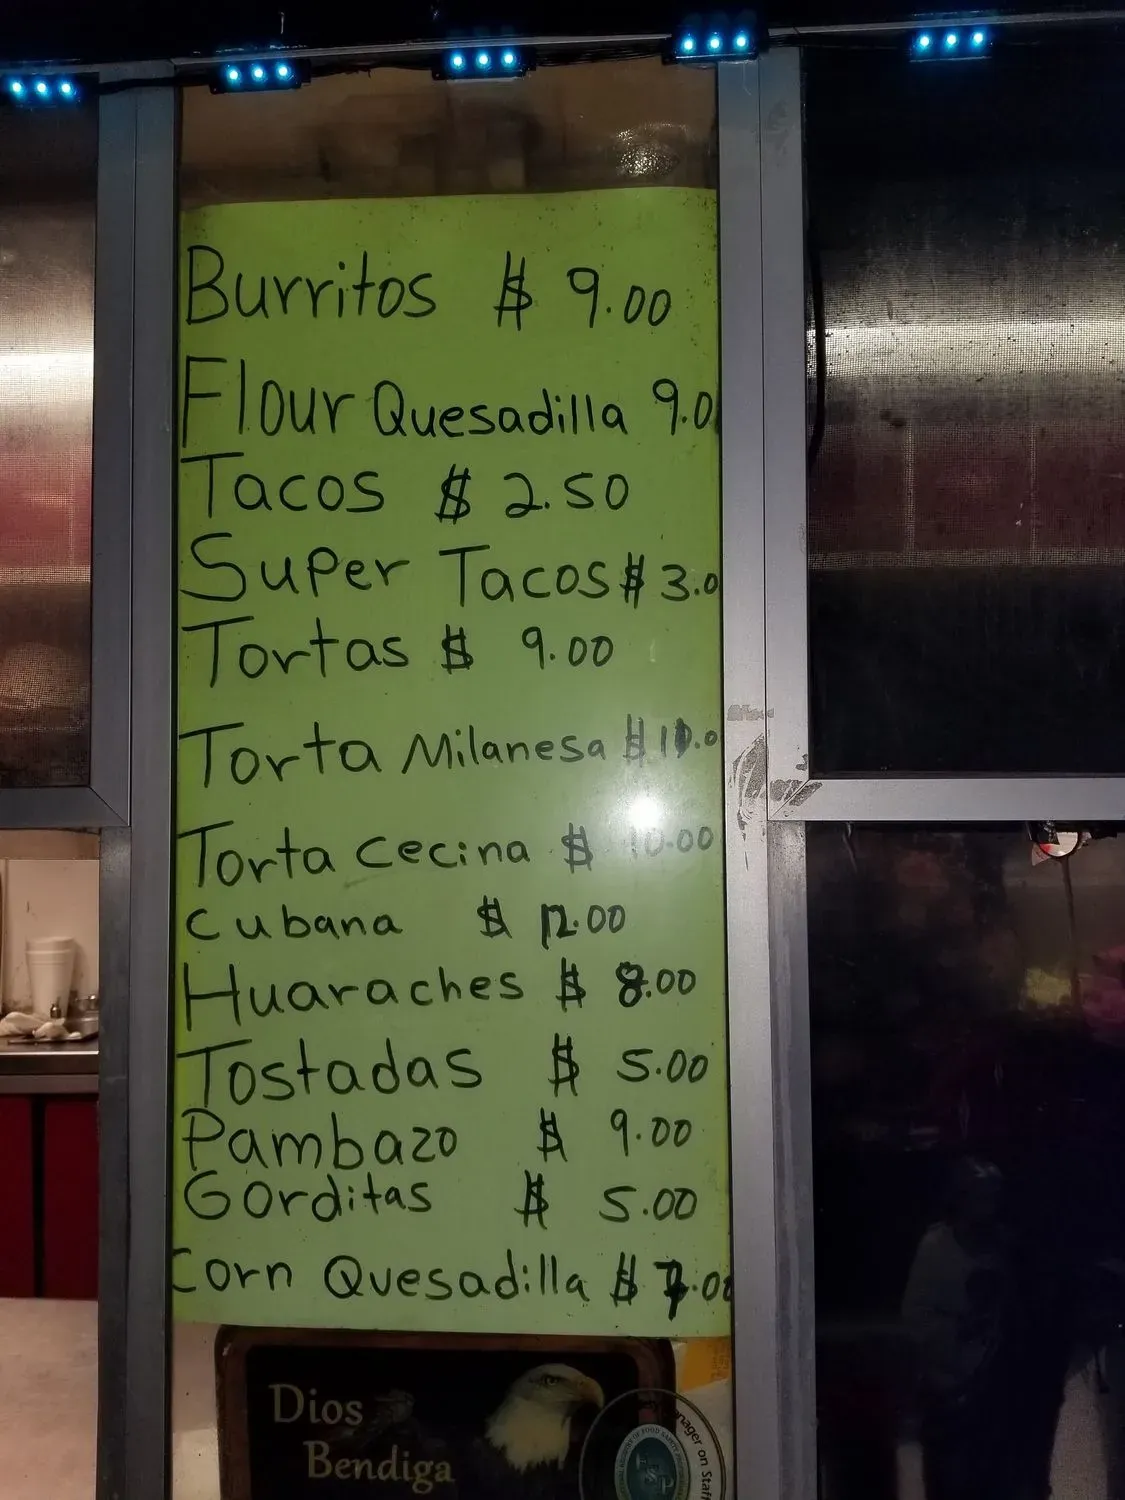 Burritos $ 9.00
Flour Quesadilla 9.0
Tacos $ 2.50
Super Tacos $ 3.0
Tortas $ 9.00
Torta Milanesa $ 11.0
Torta Cecina $ 10.00
Cubana $ 12.00
Huaraches $ 8.00
Tostadas $ 5.00
Pambazo $ 9.00
Gorditas $ 5.00
Corn Quesadilla $ 7.00
Dios
Bendiga
anager on Staff